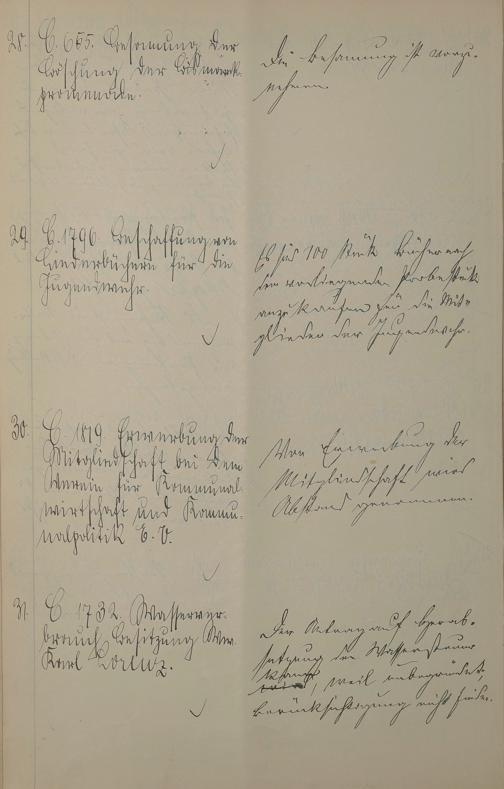 28. C. 655. Besamung der
Böschung der Bismarck-
promenade.
Die Besamung ist vorzu-
nehmen.
29. C. 1796. Beschaffung von
Liederbüchern für die
Jugendwehr.
Es sind 100 Stück Bücher nach
dem vorliegenden Probestück
anzukaufen für die Mit-
glieder der Jugendwehr.
30. C. 1819. Erwerbung der
Mitgliedschaft bei dem
Verein für Kommunal-
wirtschaft und Kommu-
nalpolitik E. V.
Von Erwerbung der
Mitgliedschaft wird
Abstand genommen.
31. C. 1732. Wasserver-
brauch Besitzung
Karl Lorenz.
Der Antrag auf Herab-
setzung der Wassersteuer
kann, weil unbegründet,
Berücksichtigung nicht finden.